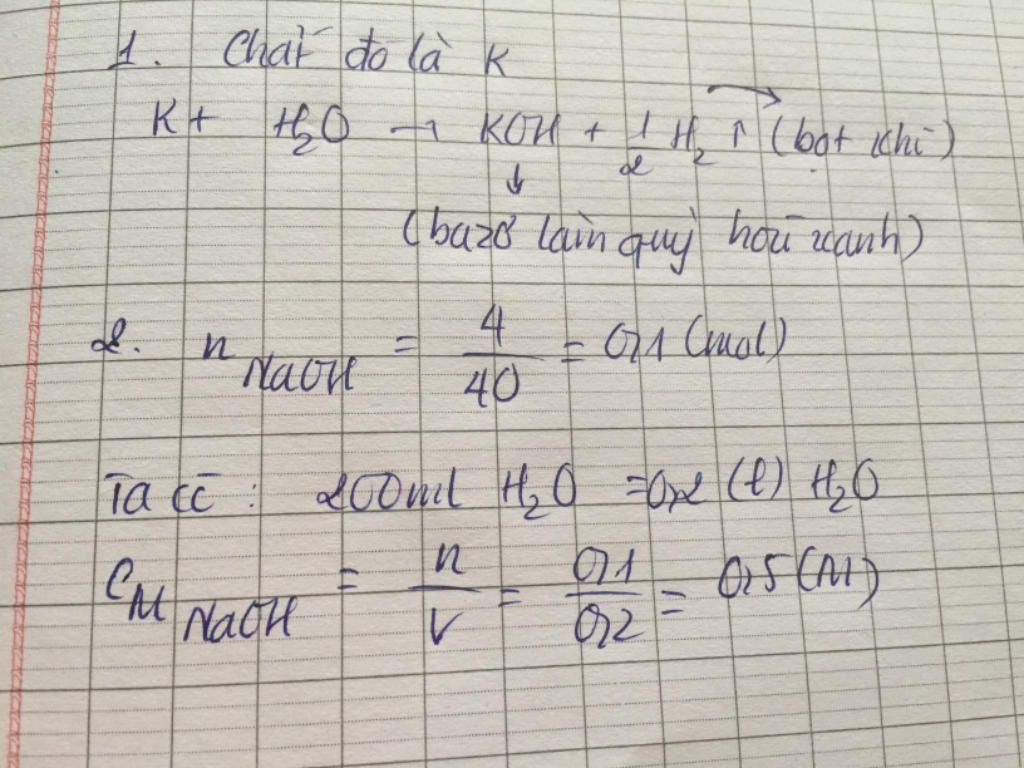 1. Chất đó là K
K + H₂O → KOH + 1/2 H₂ ↑ (bọt khí)
↓
(bazơ làm quỳ hoá xanh)
2. n NaOH = 4/40 = 0,1 (mol)
Ta có : 200ml H₂O = 0,2 (l) H₂O
CM NaOH = n/V = 0,1/0,2 = 0,5 (M)